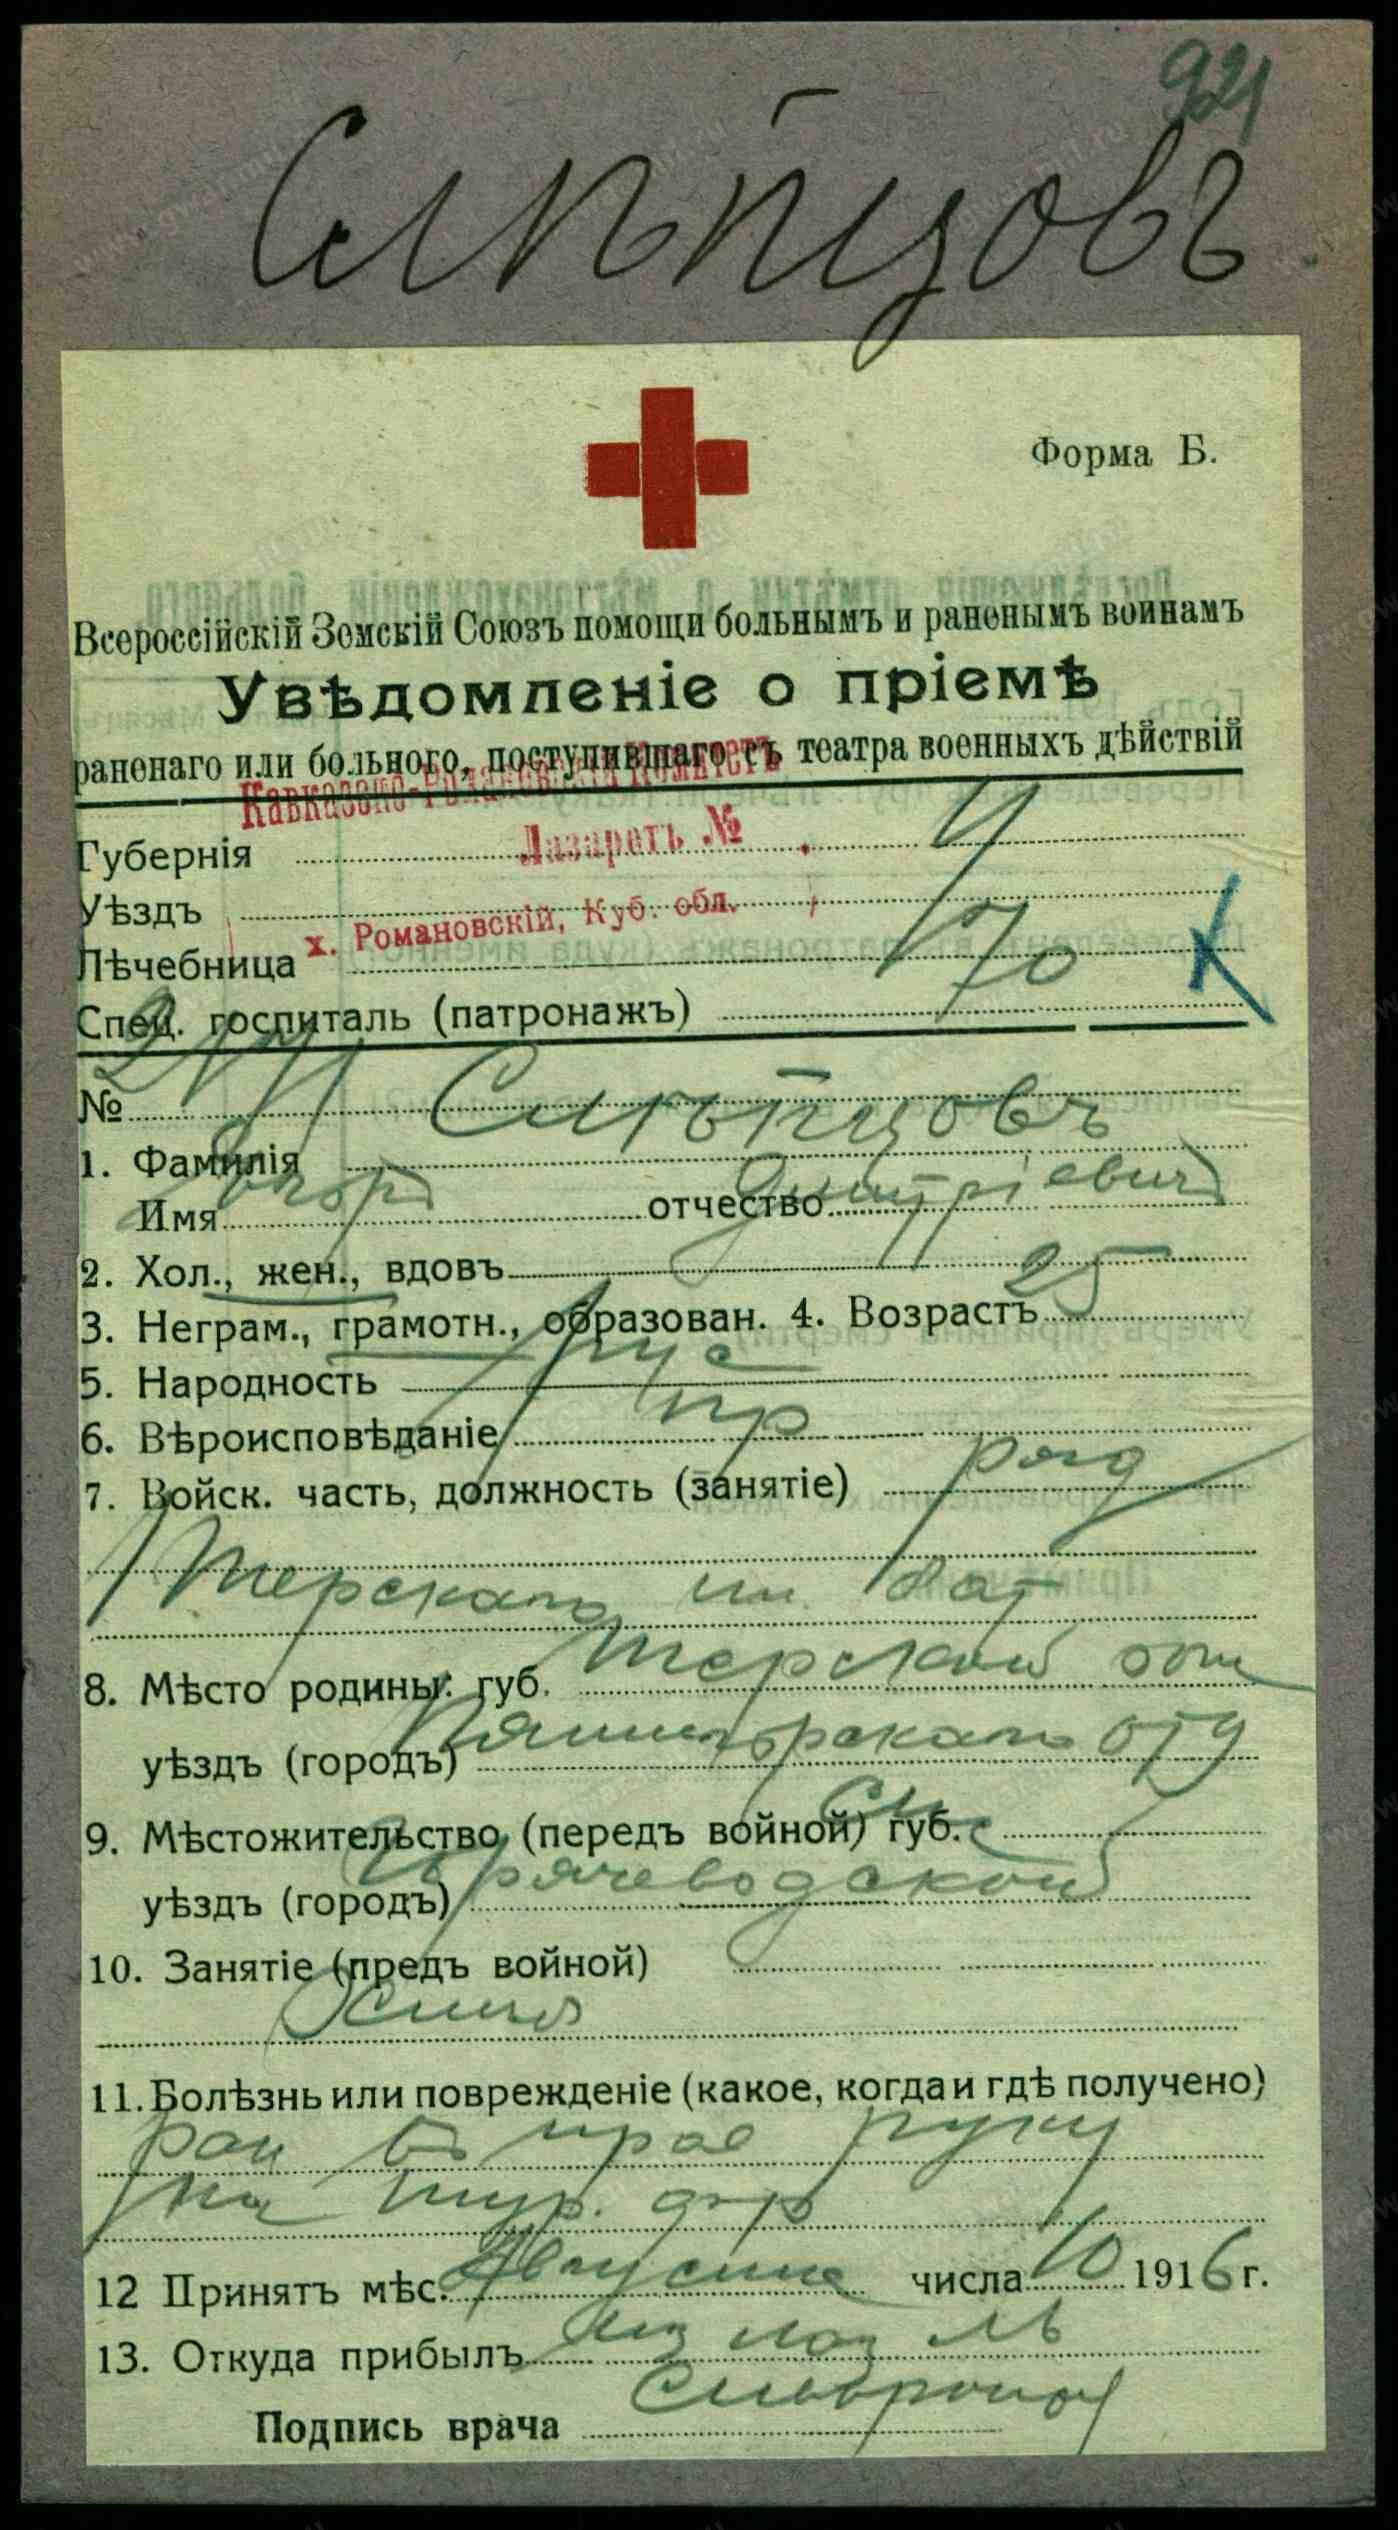 921
Слѣпцовъ
Форма Б.
Всероссійскій Земскій Союзъ помощи больнымъ и раненымъ воинамъ
Увѣдомленіе о пріемѣ
раненаго или больного, поступившаго съ театра военныхъ дѣйствій
Кавказско-Романовскій Комитетъ
Губернія Лазаретъ №
Уѣздъ
х. Романовскій, Куб. обл.
Лѣчебница
Спец. госпиталь (патронажъ)
№
1. Фамилія Слѣпцовъ
Имя отчество Дмитріевич
2. Хол., жен., вдовъ
3. Неграм., грамотн., образован. 4. Возрастъ 25
5. Народность рус
6. Вѣроисповѣданіе пр
7. Войск. часть, должность (занятіе) ряд
Терскаго пл бат
8. Мѣсто родины: губ. Терской обл
уѣздъ (городъ) Пятигорскаго отд
9. Мѣстожительство (передъ войной) губ.
уѣздъ (городъ) Горячеводской
10. Занятіе (предъ войной)
11. Болѣзнь или поврежденіе (какое, когда и гдѣ получено)
ран въ прав руку
на тур. фр
12 Принятъ мѣс. Августа числа 10 1916 г.
13. Откуда прибылъ из лаз
Ставропол
Подпись врача